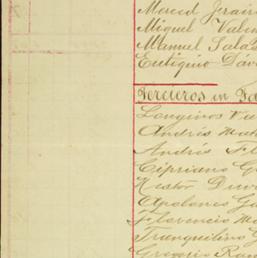 Miguel Valen
Manuel Salas
Eutiquio Dáv
Terceros in Fa
Longinos Va
Andrés Mat
Andrés Fl
Cipriano G
Nestor Duv
Apolones Ga
Florencio Ma
Tranquilino G
Gregorio Ram